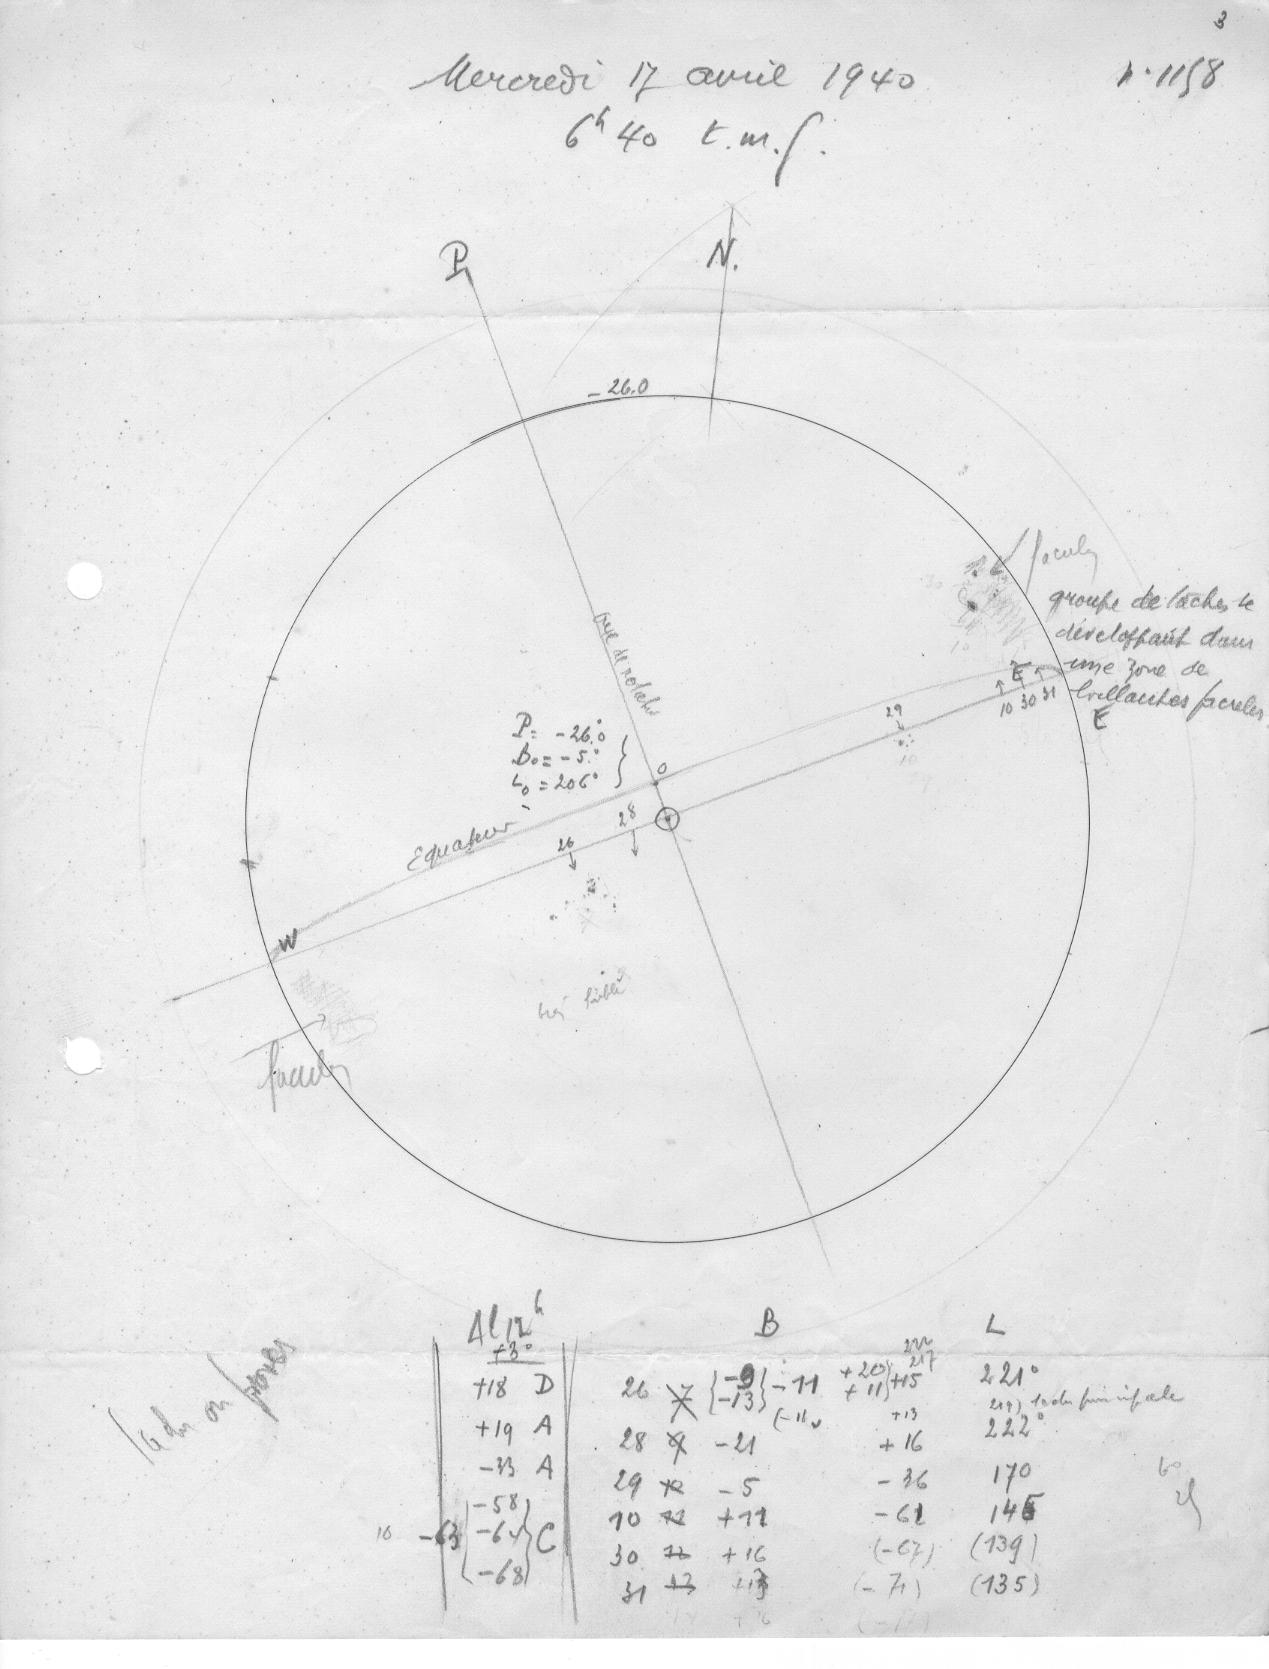 3
Mercredi 17 avril 1940
n° 1158
6h 40 t.m.g.
P
N.
-26.0
facules
groupe de taches se
développant dans
une zone de
brillantes facules
E
E
10 30 31
29
10
axe de rotation
P = -26.0°
B0 = -5.°
L0 = 206°
0
Equateur
28
26
W
très faible
facules
Al 12h B L
+3°
+18 D 26 {-9 -13} -11 +20 +11 +15 221°
219) tache principale
+19 A 28 -21 +13 +16 222°
-33 A 29 -5 -36 170
-58 10 +11 -61 145
10 -63 -64 C 30 +16 (-67) (139)
-68 31 +13 (-71) (135)